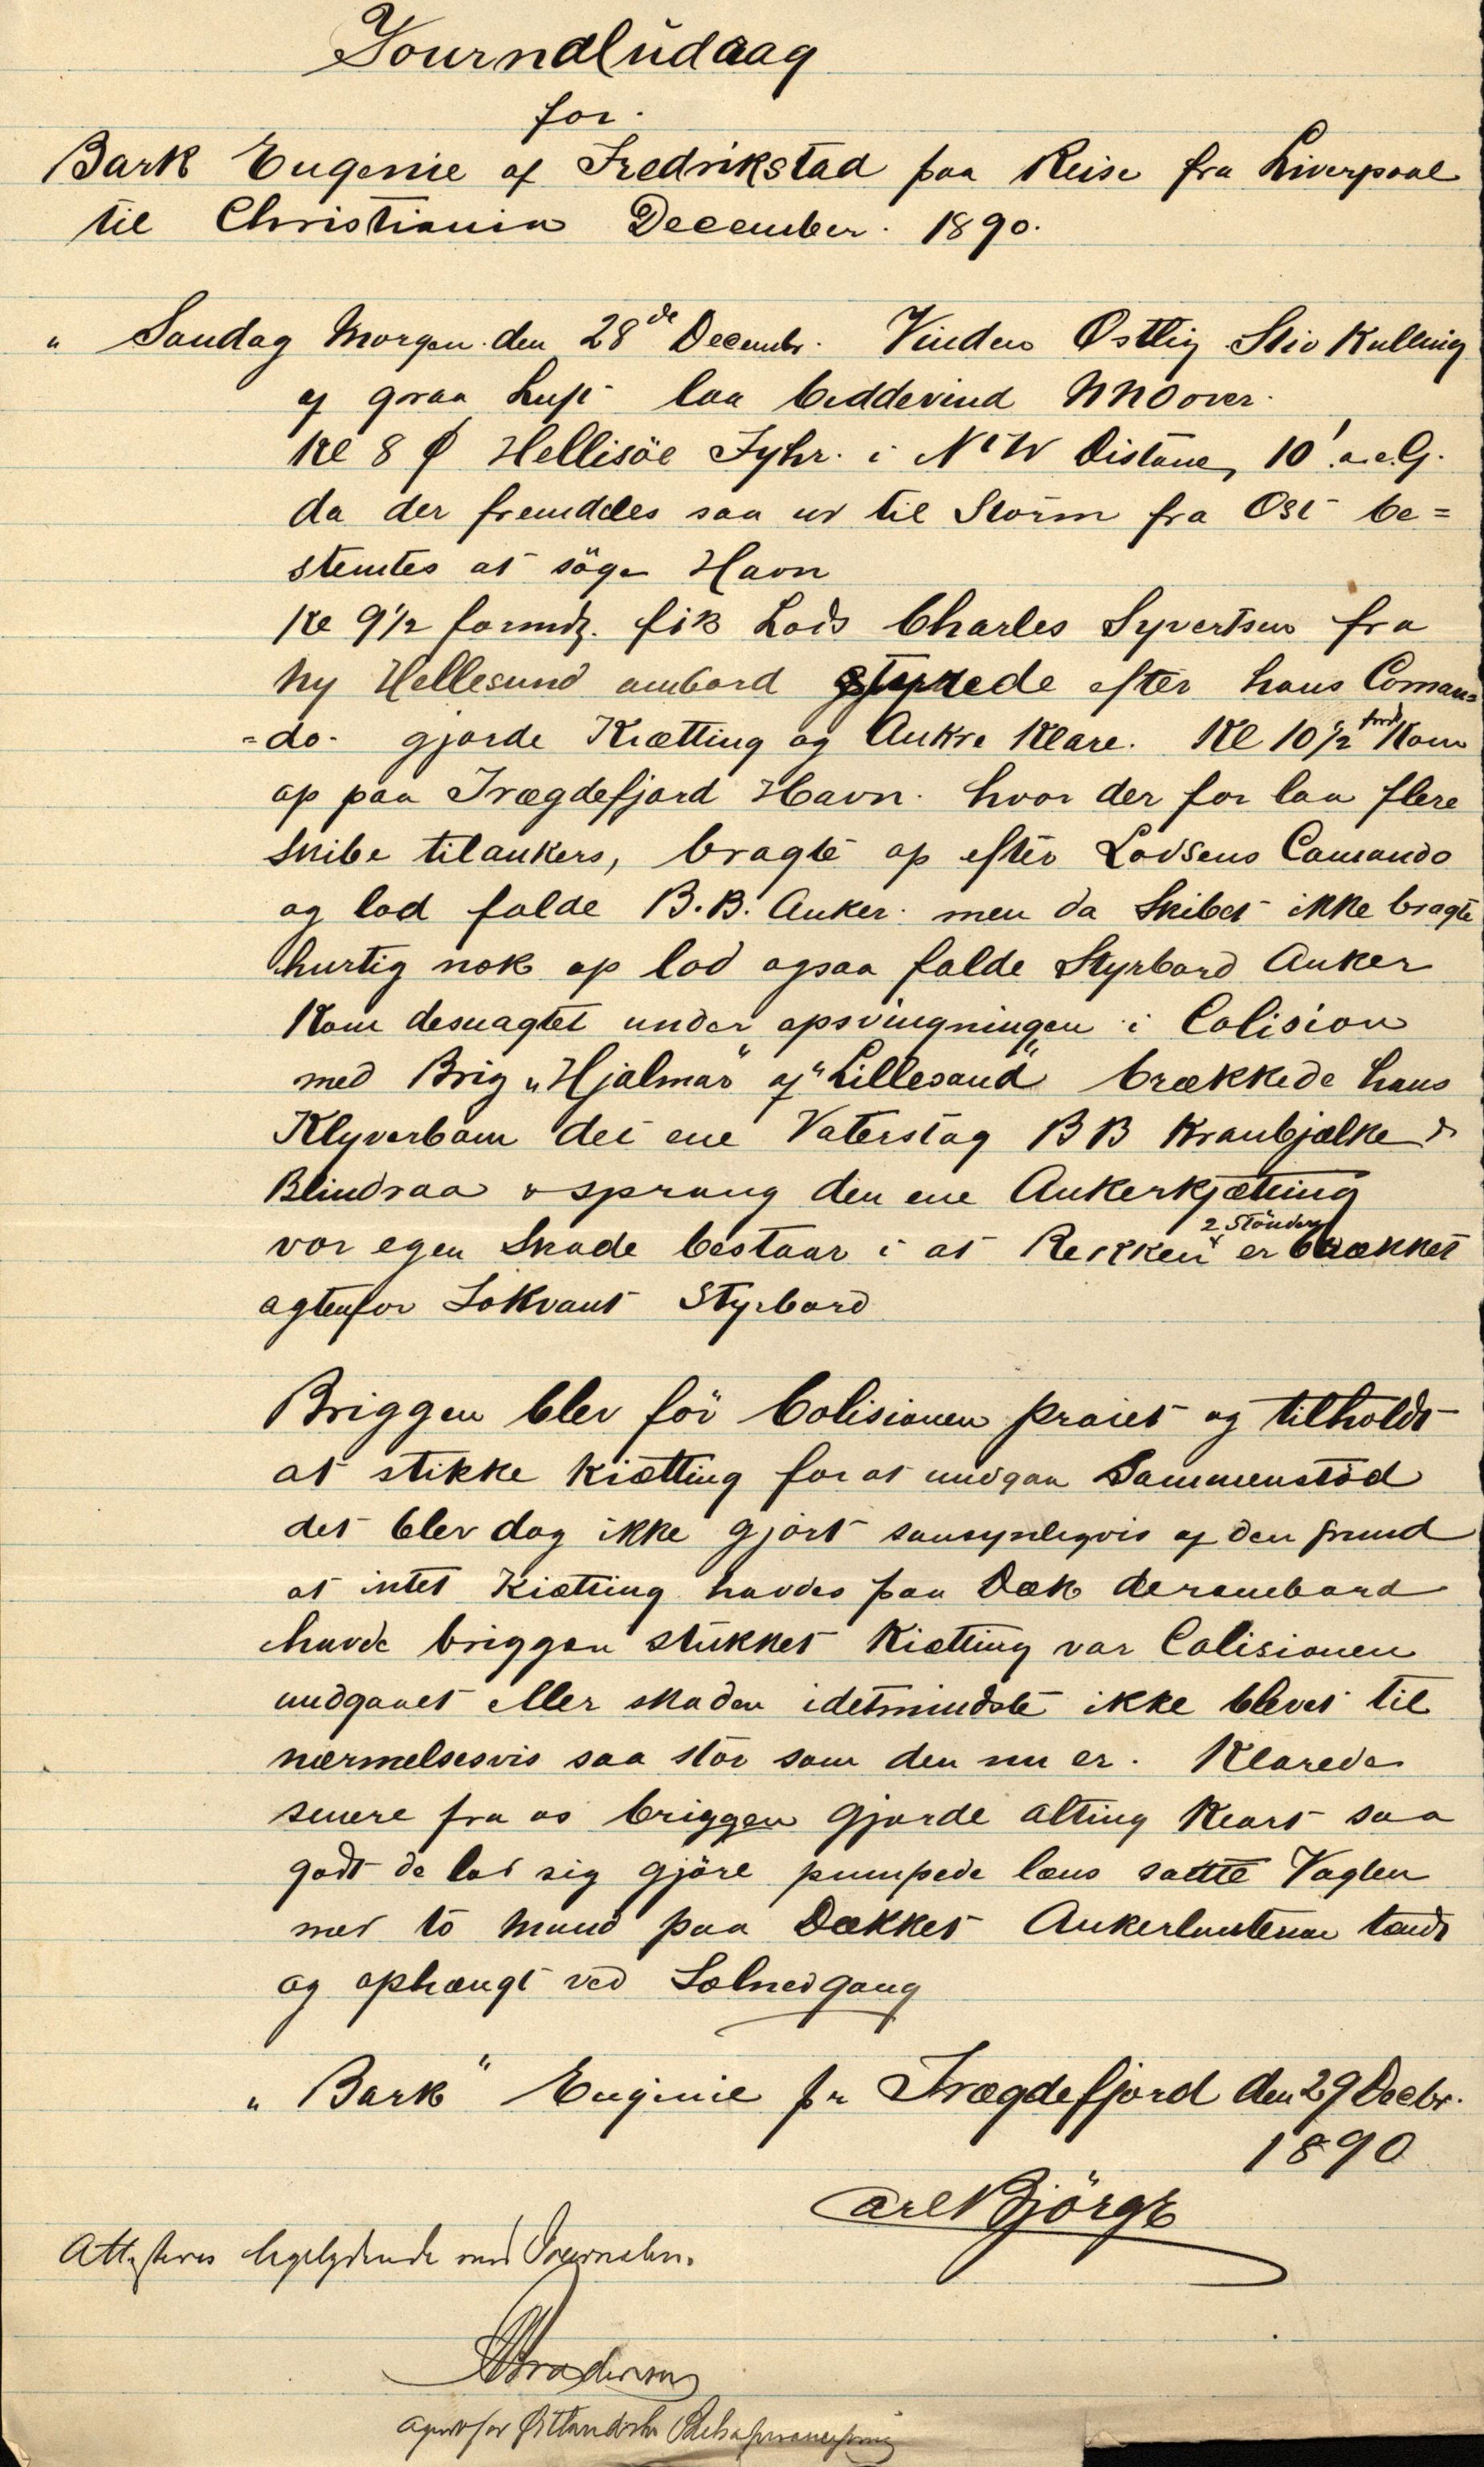 Journaludaag
for
Bark Eugenie af Fredrikstad paa Reise fra Liverpool
til Christiania December. 1890.
" Søndag Morgen den 28de Decembr. Vinden Østlig Stiv Kulling
af graa Luft laa biddevind NNO over.
Kl 8 Hellisöe Fyhr. i NtW Distance 10'
da der fremdeles saa ud til Storm fra Ost be=
stemtes at söge Havn
Kl 9½ formdg. fik Lods Charles Syvertsen fra
Ny Hellesund ombord styrede efter hans Coman=
=do. gjorde Kiætting og Ankre Klare. Kl 10½ fmd Kom
op paa Trægdefjord Havn. hvor der for laa flere
Skibe tilankers, bragte op efter Lodsens Comando
og lod falde B.B. Anker. men da Skibet ikke bragte
hurtig nok op lod ogsaa falde Styrbord Anker
Kom desuagtet under opsvingningen i Colision
med Brig "Hjalmar" af "Lillesand" brækkede hans
Klyverbom det ene Vaterstag BB Kranbjælke &
Blindraa & sprang den ene Ankerkjætting
vor egen Skade bestaar i at Rekken & 2 Stönder er brækket
agtenfor Fokvant Styrbord
Briggen blev för Colisionen praiet og tilholdt
at stikke Kiætting for at undgaa Sammenstöd
det blev dog ikke gjort sansynligvis af den grund
at intet Kiætting havdes paa Dæk derombord
havde briggen stukket Kiætting var Colisionen
undgaaet eller skaden idetmindste ikke blevet til
nærmelsesvis saa stor som den nu er. Klarede
senere fra os briggen gjorde alting Klart saa
godt de lod sig gjöre pumpede læns satte Vagten
med to Mand paa Dækket Ankerlanterne tændt
og ophængt ved Solnedgang
"Bark" Eugenie pr Trægdefjord den 29 Decbr.
1890
Carl Björge
Attesteres ligelydende med Journalen.
Agent for